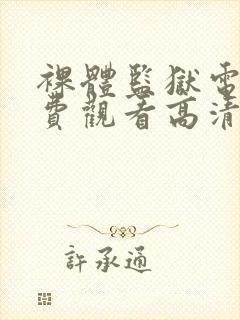 裸體監獄電
費觀看高清
許承通